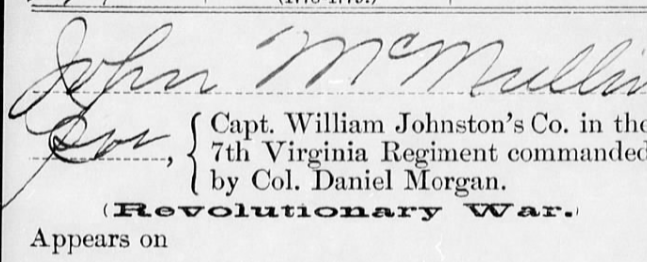 John McMullin
Cor, { Capt. William Johnston's Co. in the
7th Virginia Regiment commanded
by Col. Daniel Morgan.
(Revolutionary War.)
Appears on